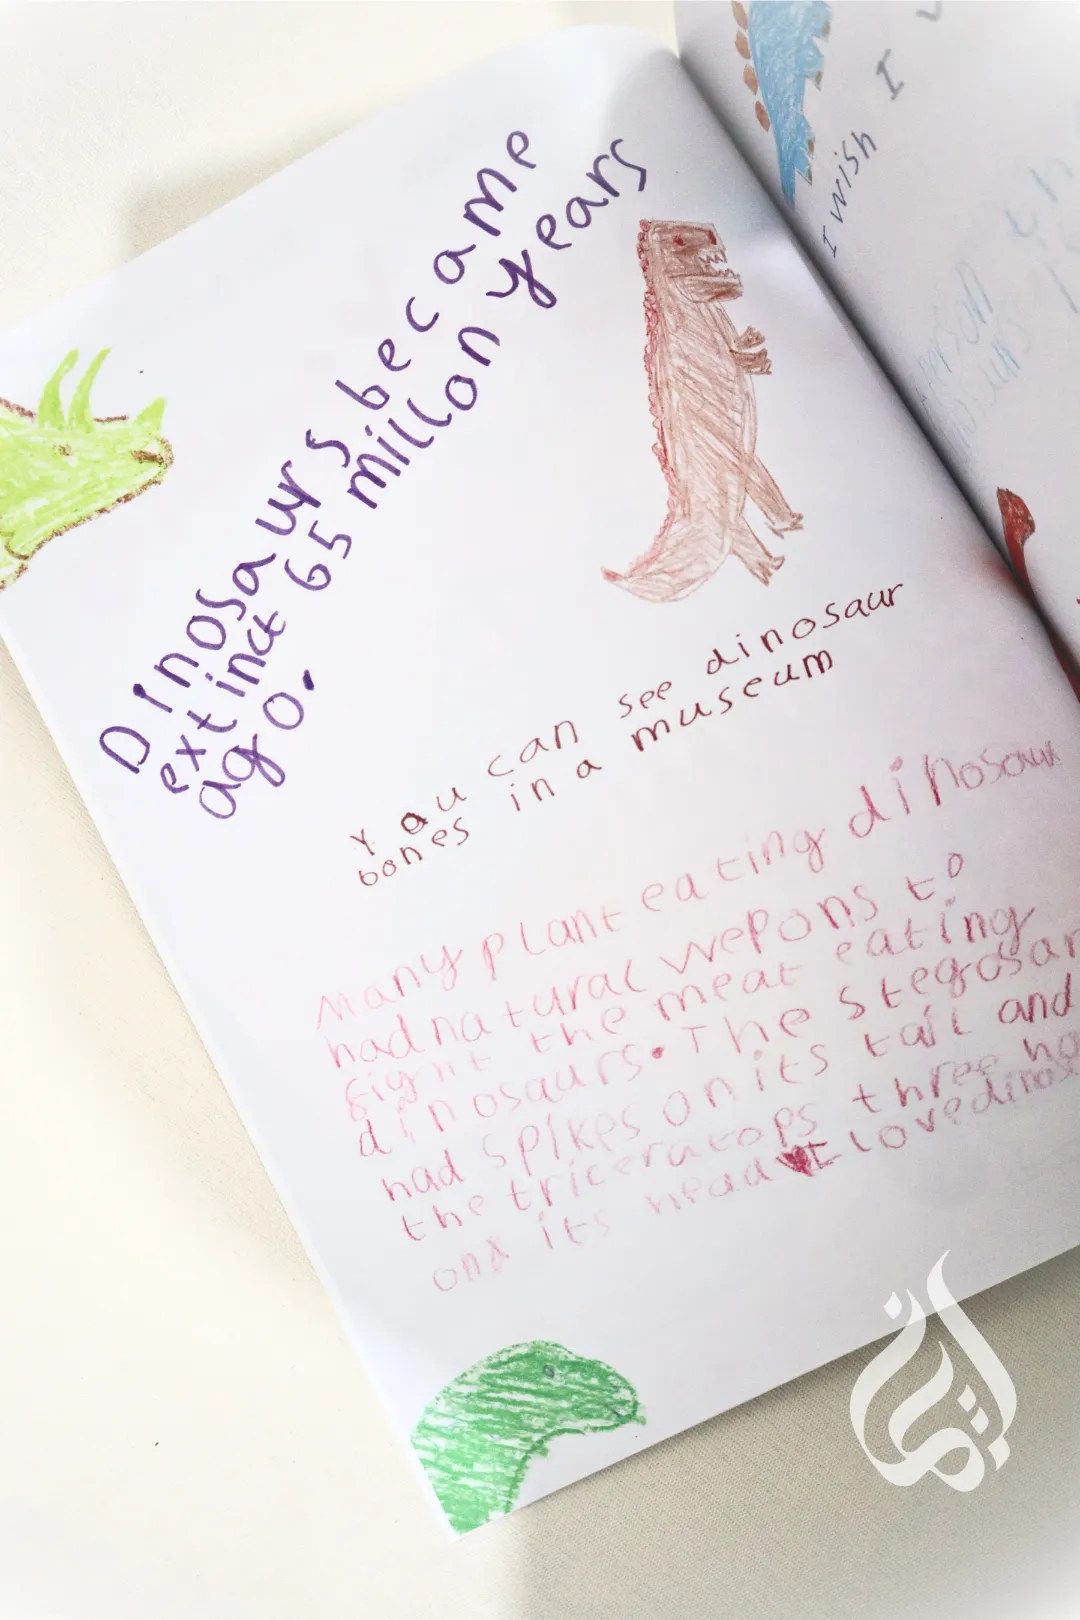 Dinosaurs became
extinct 65 millon years
ago.
You can see dinosaur
bones in a museum
Many plant eating dinosaur
had natural wepons to
fight the meat eating
dinosaurs. The stegosar
had spikes on its tail and
the triceratops three ho
on its head I love dinos
I wish I